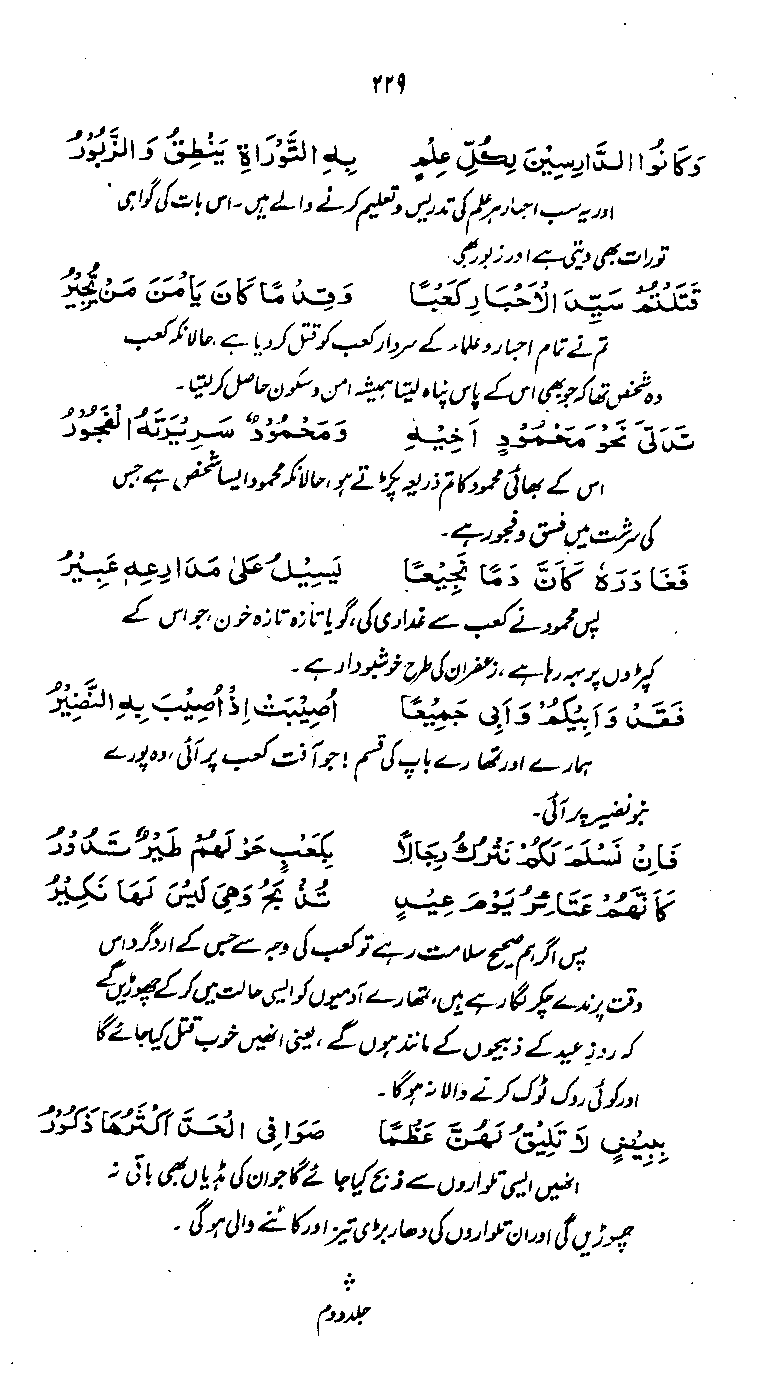 ۲۲۹
وَكَانُوا الدَّارِسِيْنَ بِكُلِّ عِلْمٍ بِهِ التَّوْرَاةُ يَنْطِقُ وَالزَّبُوْرُ
اور یہ سب احبار ہر علم کی تدریس و تعلیم کرنے والے ہیں۔ اس بات کی گواہی
تورات بھی دیتی ہے اور زبور بھی۔
قَتَلْتُمْ سَيِّدَ الْاَحْبَارِ كَعْبًا وَقِدْمًا كَانَ يَأْمَنُ مَنْ يُجِيْرُ
تم نے تمام احبار و علماء کے سردار کعب کو قتل کر دیا ہے، حالانکہ کعب
وہ شخص تھا کہ جو بھی اس کے پاس پناہ لیتا ہمیشہ امن و سکون حاصل کر لیتا۔
تَدَلّٰى نَحْوَ مَحْمُوْدٍ اَخِيْهِ وَمَحْمُوْدٌ سَرِيْرَتُهُ الْفُجُوْرُ
اس کے بھائی محمود کا تم ذریعہ پکڑتے ہو، حالانکہ محمود ایسا شخص ہے جس
کی سرشت میں فسق و فجور ہے۔
فَغَادَرَهُ كَاَنَّ دَمًا نَجِيْعًا يَسِيْلُ عَلٰى مَدَارِعِهٖ عَبِيْرُ
پس محمود نے کعب سے غداری کی، گویا تازہ تازہ خون، جو اس کے
کپڑوں پر بہہ رہا ہے، زعفران کی طرح خوشبودار ہے۔
فَقَدْ وَاَبِيْكُمُ وَاَبِى جَمِيْعًا اُصِيْبَتْ اِذْ اُصِيْبَ بِهِ النَّضِيْرُ
ہمارے اور تمھارے باپ کی قسم! جو آفت کعب پر آئی، وہ پورے
بنو نضیر پر آئی۔
فَاِنْ نَسْلَمْ لَكُمْ نَتْرُكْ رِجَالًا بِكَعْبٍ حَوْلَهُمْ طَيْرٌ تَدُوْرُ
كَاَنَّهُمُ عَتَائِرُ يَوْمَ عِيْدٍ تُذْبَحُ وَهِيَ لَيْسَ لَهَا نَكِيْرُ
پس اگر ہم صحیح سلامت رہے تو کعب کی وجہ سے جس کے اردگرد اس
وقت پرندے چکر لگا رہے ہیں، تمھارے آدمیوں کو ایسی حالت میں کر کے چھوڑیں گے
کہ روزِ عید کے ذبیحوں کے مانند ہوں گے، یعنی انھیں خوب قتل کیا جائے گا
اور کوئی روک ٹوک کرنے والا نہ ہوگا۔
بِبِيْضٍ لَا تَلِيْقُ لَهُنَّ عَظْمًا صَوَافِى الْحَدِّ اَكْثَرُهَا ذُكُوْرُ
انھیں ایسی تلواروں سے ذبح کیا جائے گا جو ان کی ہڈیاں بھی باقی نہ
چھوڑیں گی اور ان تلواروں کی دھار بڑی تیز اور کاٹنے والی ہوگی۔
جلد دوم